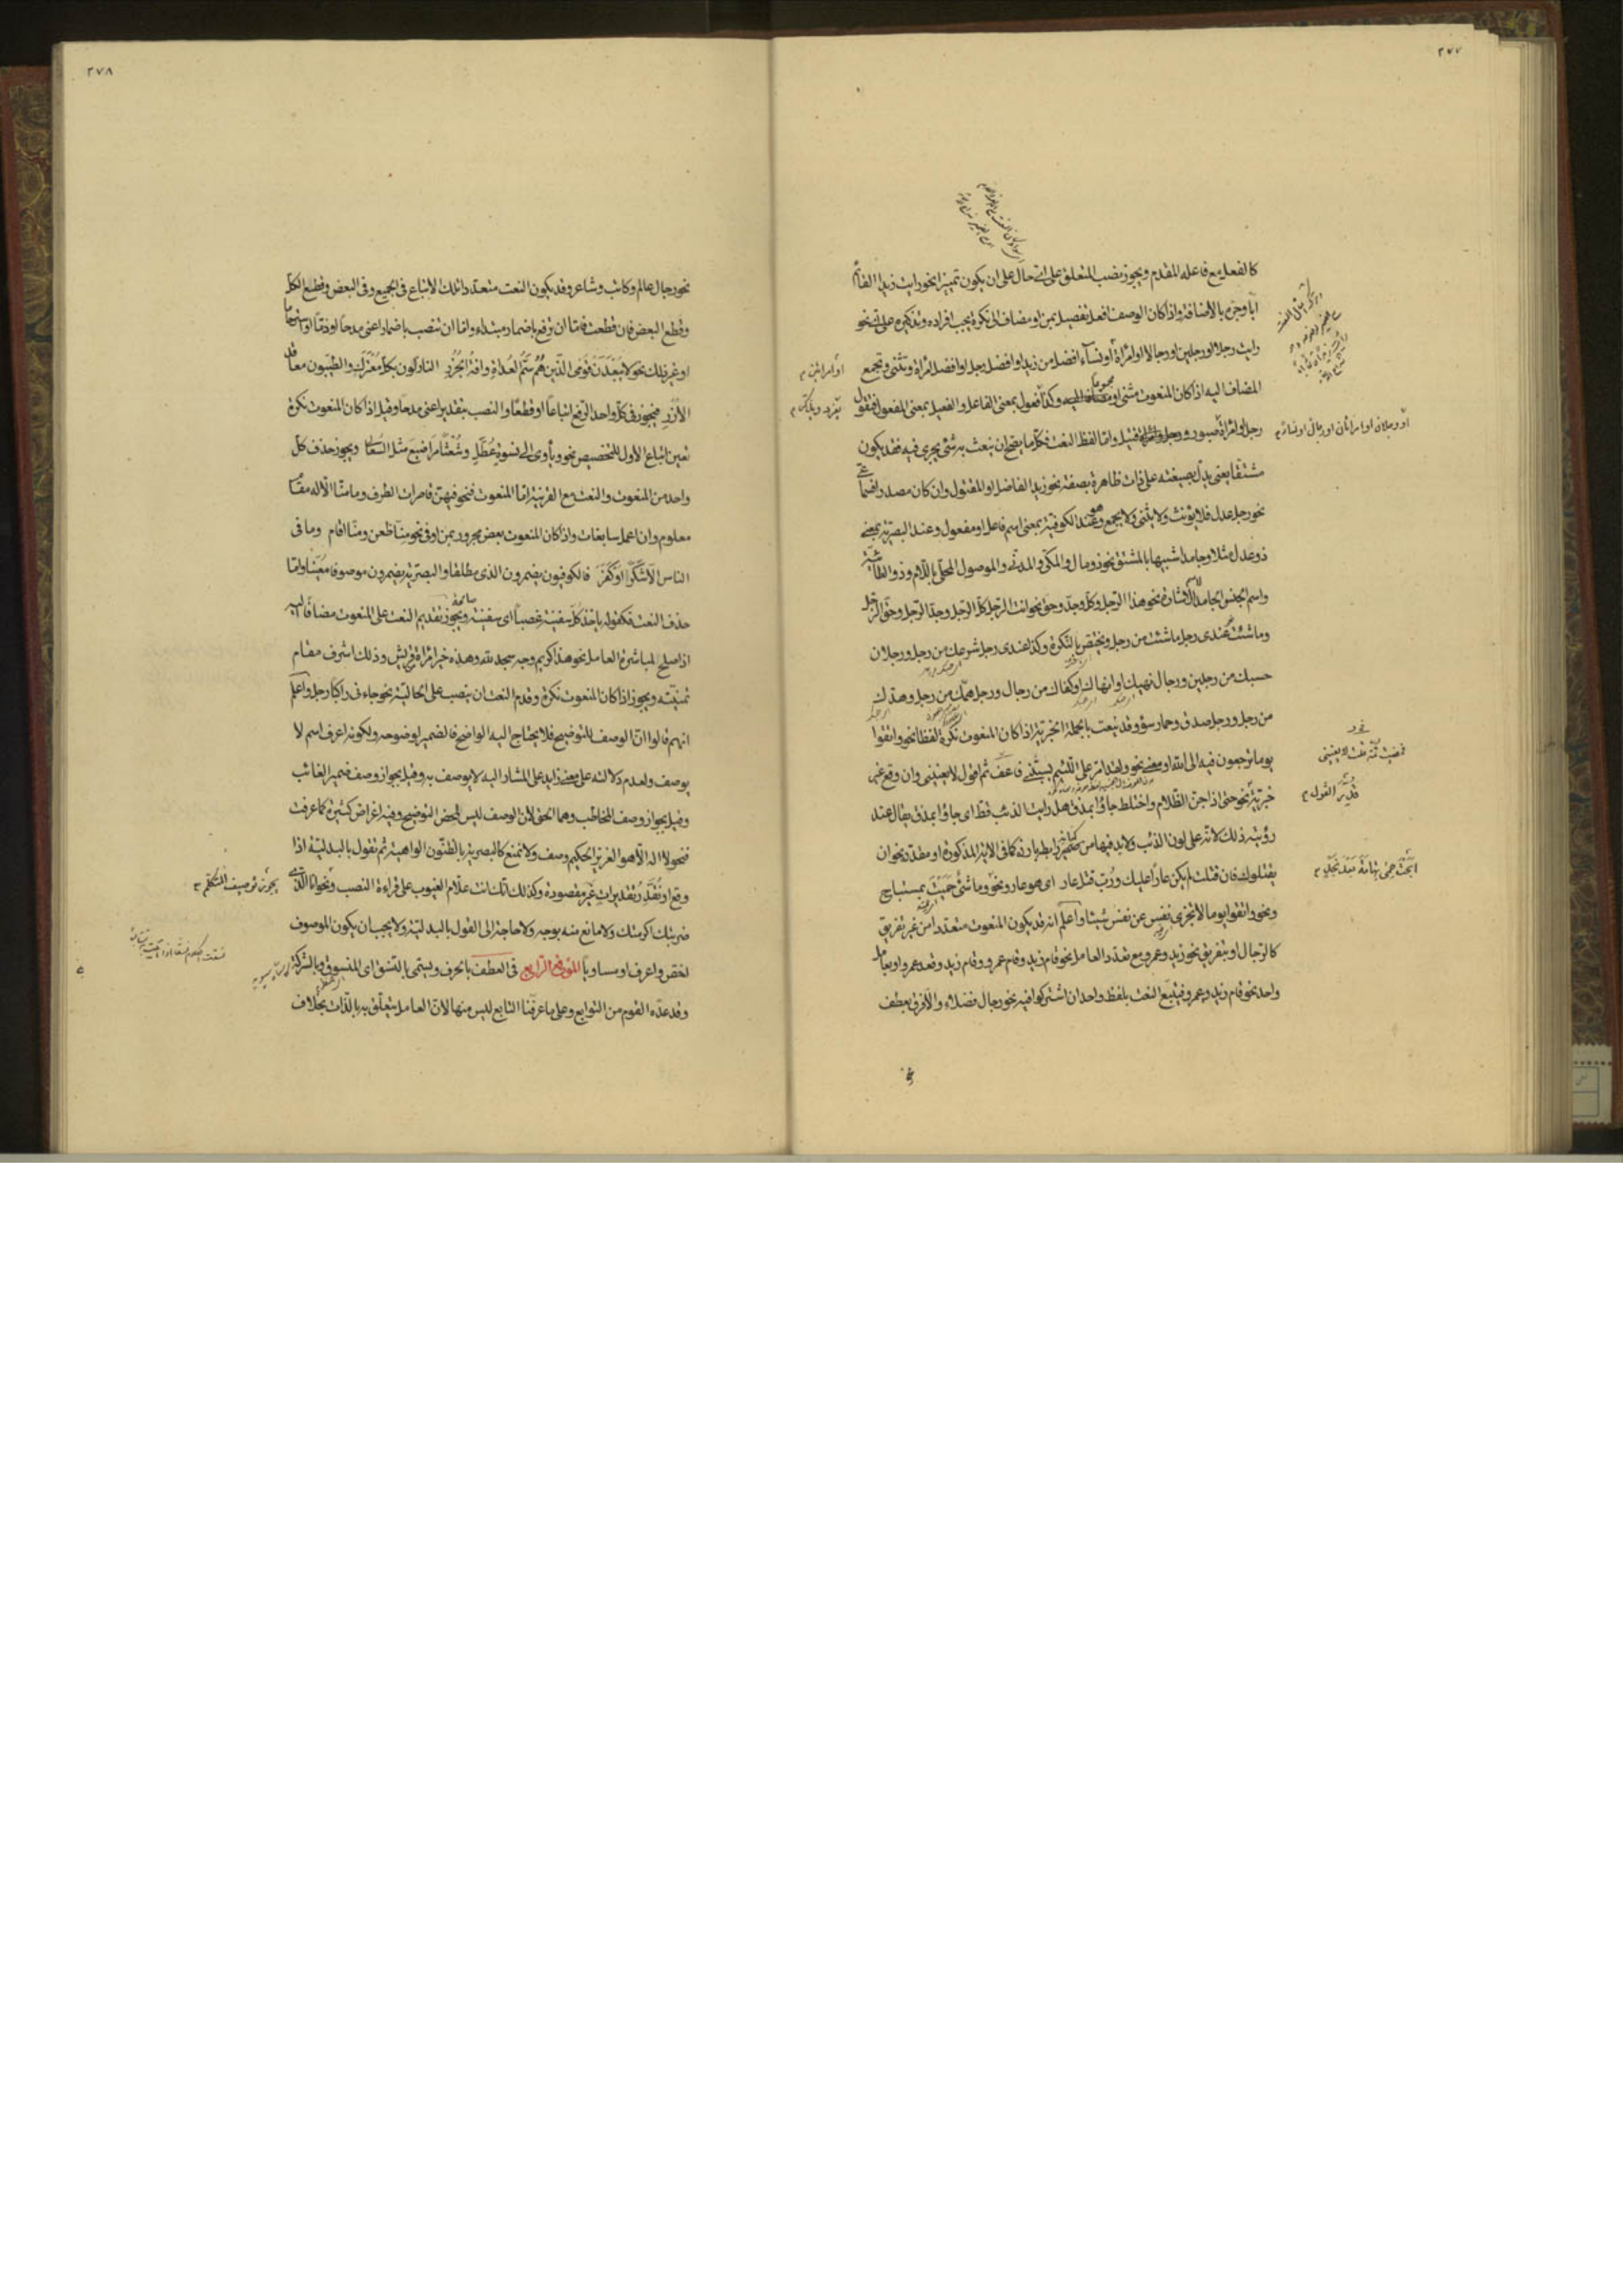 ٢٧٧
كالفعل مع فاعله المقدم ويجوز نصب المتعلق على انه حال على ان يكون تميزا نحو رايت زيدا القائم
ابا وجره بالاضافة واذا كان الوصف افعل تفضيل بمن او مضاف الى نكرة يجب افراده وتذكيره على نحو
رايت رجلا او رجلين او رجالا او امراة او نسآء افضل من زيد او افضل رجل او افضل امراة وتثنى وتجمع
المضاف اليه اذا كان المنعوت مثنى او مجموعا وكذا فعول بمعنى الفاعل والفعيل بمعنى المفعول فتقول
رجل او امراة صبور ورجل قتيل واما لفظ النعت فكل ما يصح ان ينعت به شئ يجرى فيه فقد يكون
مشتقا يعنى يدل بصيغته على ذات ظاهرة بصفة نحو زيد الفاضل او المقتول وان كان مصدر
نحو رجل عدل فلا يؤنث ولا يثنى ولا يجمع وهو عند الكوفية بمعنى اسم فاعل او مفعول وعند البصرية بمعنى
ذو عدل مثلا وجامدا شبيها بالمشتق نحو ذو مال والمكى والمدنى والموصول المحلى باللام وذو الطائية
واسم الجنس الجامد للاشارة نحو هذا الرجل وكل وجد وحق نحو انت الرجل كل الرجل وجد الرجل وحق الرجل
وما شئت نحو عندى رجل ما شئت من رجل ويختص بالنكرة وكذا عندى رجل شرعك من رجل ورجلان
حسبك من رجلين ورجال نهيك او انهاك او كفاك من رجال ورجل همك من رجل وهدك
من رجل ورجل صدق وحمار سوء وقد ينعت بالجملة الخبرية اذا كان المنعوت نكرة لفظا نحو واتقوا
يوما ترجعون فيه الى الله او معنى نحو ولقد امر على اللئيم يسبنى فاعف ثم اقول لا يعنينى وان وقع غير
خبرية نحو حتى اذا جن الظلام واختلط جاؤا بمذق هل رايت الذئب قط اى جاؤا بمذق يقال عند
رؤيته ذلك لانه على لون الذئب ولابد فيها من ضمير رابط بارز كما فى الاية المذكورة او مقدر نحو ان
يقتلوك فان قتلك لم يكن عارا عليك ورب قتل عار اى هو عار ونحو وما شئ حميت بمستباح
ونحو واتقوا يوما لا تجزى نفس عن نفس شيئا واعلم انه قد يكون المنعوت متعددا من غير تفريق
كالرجال او بتفريق نحو زيد وعمرو مع تعدد العامل نحو قام زيد وقام عمرو وقام زيد وقعد عمرو او بعامل
واحد نحو قام زيد وعمرو فيتبع النعت بلفظ واحد ان اشتركوا فيه نحو رجال فضلاء والا فرق بعطف
نحو
او امراتين
او رجلان او امراتان او رجال او نساء
فمضيت ثمة قلت لا يعنينى
بتقدير القول
ابحت حمى تهامة بعد نجد
٢٧٨
نحو رجال عالم وكاتب وشاعر وقد يكون النعت متعددا فلك الاتباع فى الجميع وفى البعض وقطع الكل
وقطع البعض فان قطعت فاما ان ترفع باضمار مبتداء واما ان تنصب باضمار اعنى مدحا او ذما او ترحما
او غير ذلك نحو لا يبعدن قومى الذين هم سم العداة وافة الجزر النازلون بكل معترك والطيبون معاقد
الازر فيجوز فى كل واحد الرفع اتباعا او قطعا والنصب بتقدير اعنى مدحا وقيل اذا كان المنعوت نكرة
تعين اتباع الاول للتخصيص نحو ويأوى الى نسوة عطل وشعثا مراضيع مثل السعالى ويجوز حذف كل
واحد من المنعوت والنعت مع القرينة اما المنعوت فنحو فيهن قاصرات الطرف وما منا الا له مقام
معلوم وان اعمل سابغات واذا كان المنعوت بعض مجرور بمن او فى نحو منا ظعن ومنا اقام وما فى
الناس الا شكر او كفر فالكوفيون يضمرون الذى مطلقا والبصرية يضمرون موصوفا معينا واما
حذف النعت فكقوله ياخذ كل سفينة غصبا اى سفينة صالحة ويجوز تقديم النعت على المنعوت مضافا اليه
اذا صلح لمباشرة العامل نحو هذا كريم وجه سجد لله وهذه خير امراة قريش وذلك اشرف مقام
تمنيته ويجوز اذا كان المنعوت نكرة وقدم النعت ان ينصب على الحالية نحو جاءنى راكبا رجل واعلم
انهم قالوا ان الوصف للتوضيح فلا يحتاج اليه الواضح فالضمير لوضوحه ولكونه اعرف اسم لا
يوصف ولعدم دلالته على معنى زايد على المشار اليه لا يوصف به وقيل بجواز وصف ضمير الغائب
وقيل بجواز وصف المخاطب وهما الحق لان الوصف ليس لمحض التوضيح وفيه اغراض كثيرة كما عرفت
فنحو لا اله الا هو العزيز الحكيم وصف ولا تمنع كالبصرية بالظنون الواهية ثم نقول بالبدلية اذا
وقع او نقدر تقديرات غير مقصودة وكذلك انك انت علام الغيوب على قراءة النصب ونحو انا الذى
ضربتك اكرمتك ولا مانع منه بوجه ولا حاجة الى القول بالبدلية ولا يجب ان يكون الموصوف
اخص واعرف او مساويا الموضع الرابع فى العطف بالحرف ويسمى بالنسق اى المنسوق وبالشركة
وقد عده القوم من التوابع وعلى ما عرفنا التابع ليس منها لان العامل يتعلق به بالذات بخلاف
يجوز توصيف المتكلم